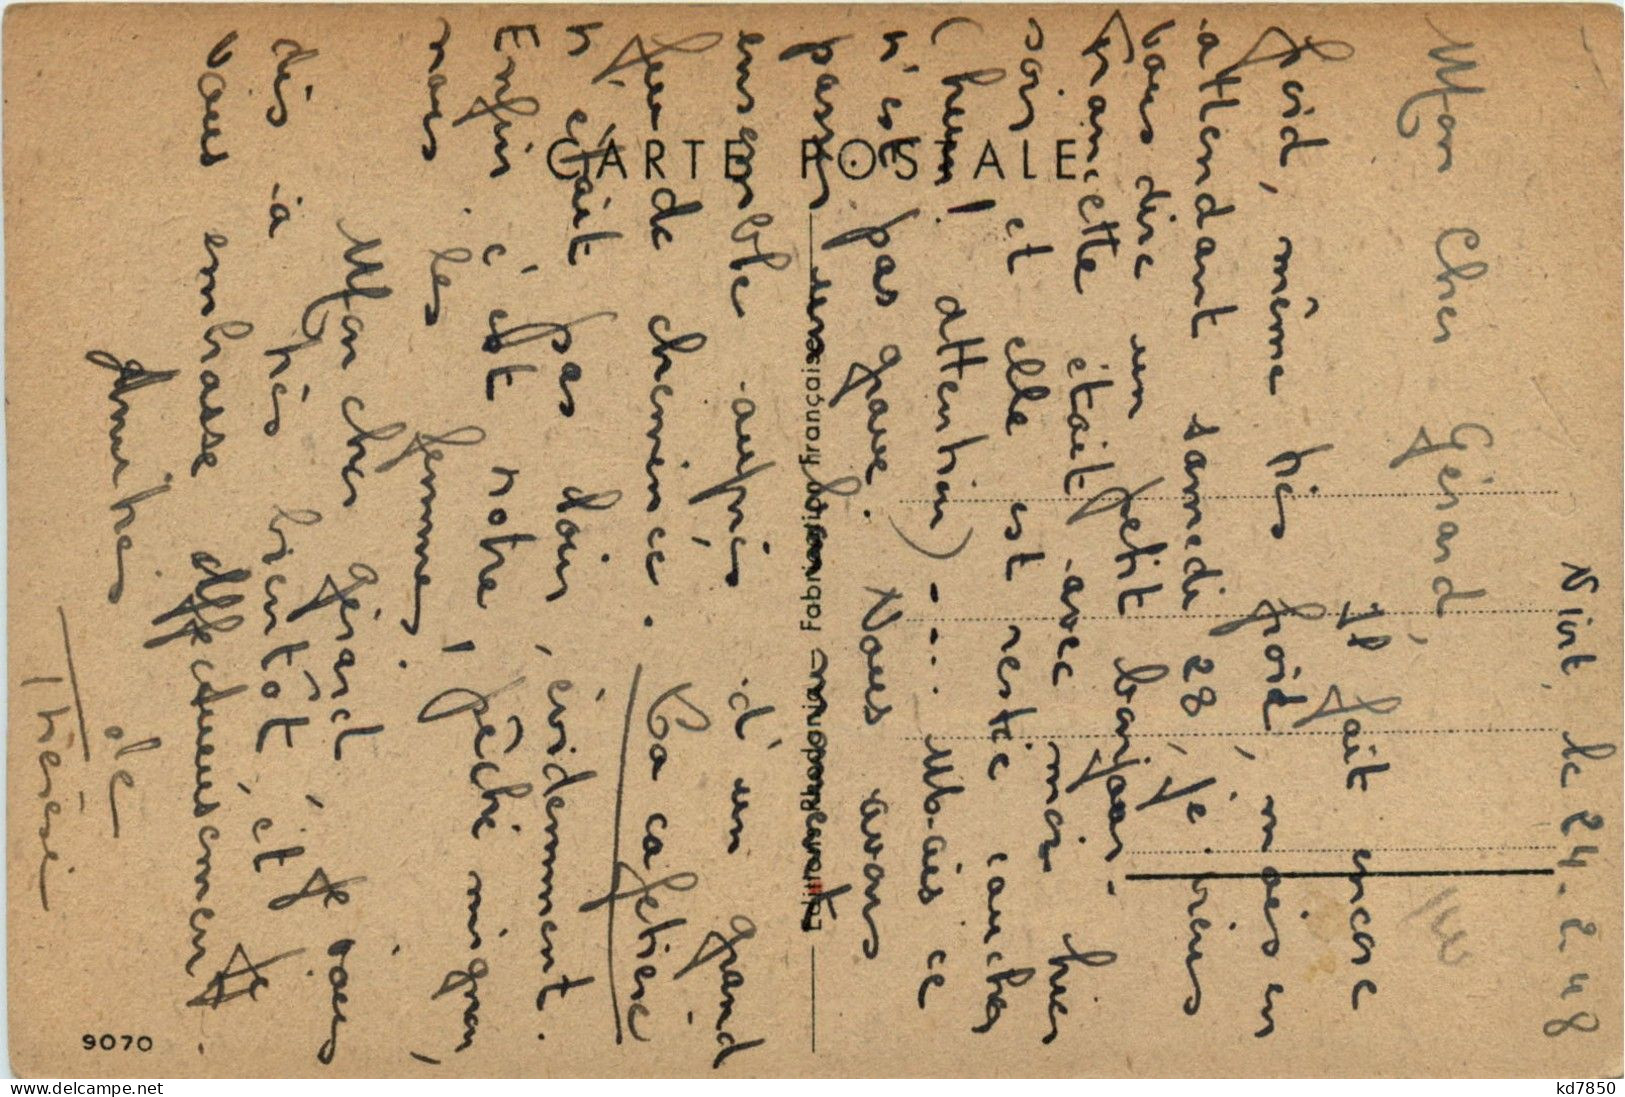 Niort, le 24.2.48
Mon Cher Gérard,
Il fait encore
froid, même très froid, mais en
attendant samedi 28, je viens
vous dire un petit bonjour.
Francette était avec moi hier
soir et elle est restée coucher
(hum! attention) .... Mais ce
n'est pas grave. Nous avons
passé une
ensemble auprès d'un grand
feu de cheminée. La cafetière
n'était pas loin, évidemment.
Enfin c'est notre péché mignon,
nous les femmes.
Mon cher Gérard, je vous
dis à très bientôt, et je
vous embrasse affectueusement.
Amitiés de
Thérèse
CARTE POSTALE
Editions Rhodania Fabrication Française
9070
www.delcampe.net
kd7850